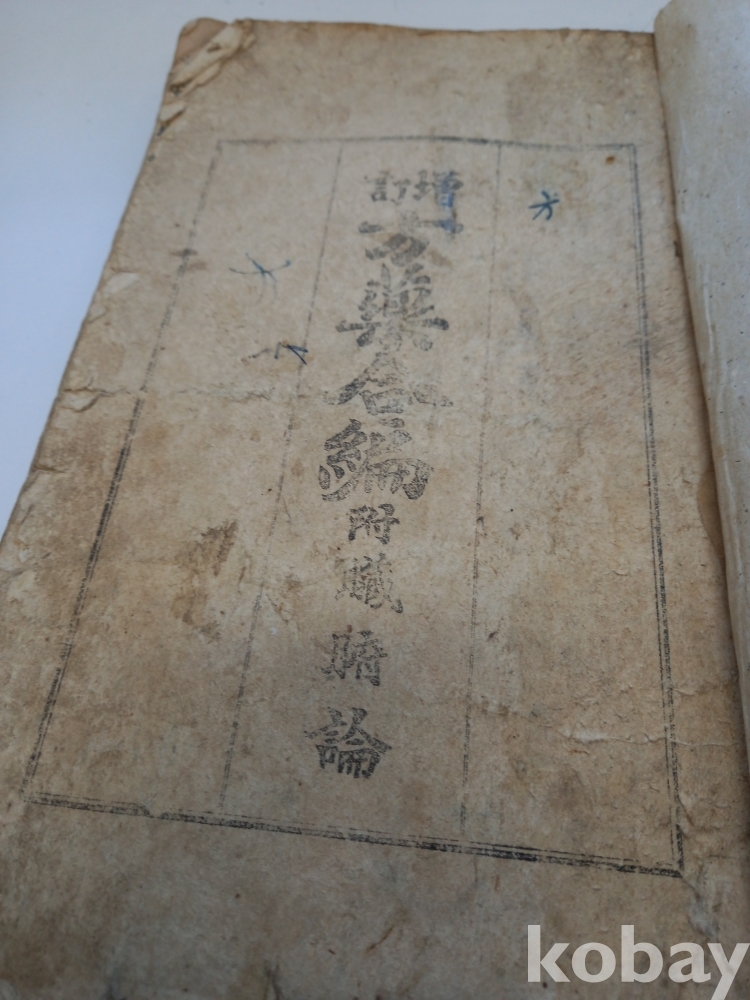 增訂
方藥合編附臟腑論
kobay